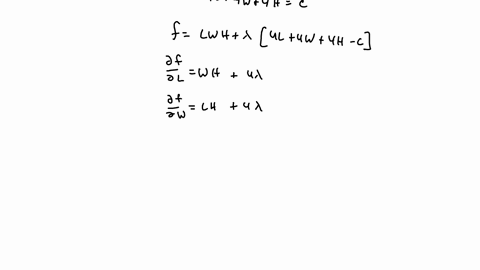 +4W+4H = C
f = LWH + λ [4L + 4W + 4H - C]
∂f/∂L = WH + 4λ
∂f/∂W = LH + 4λ